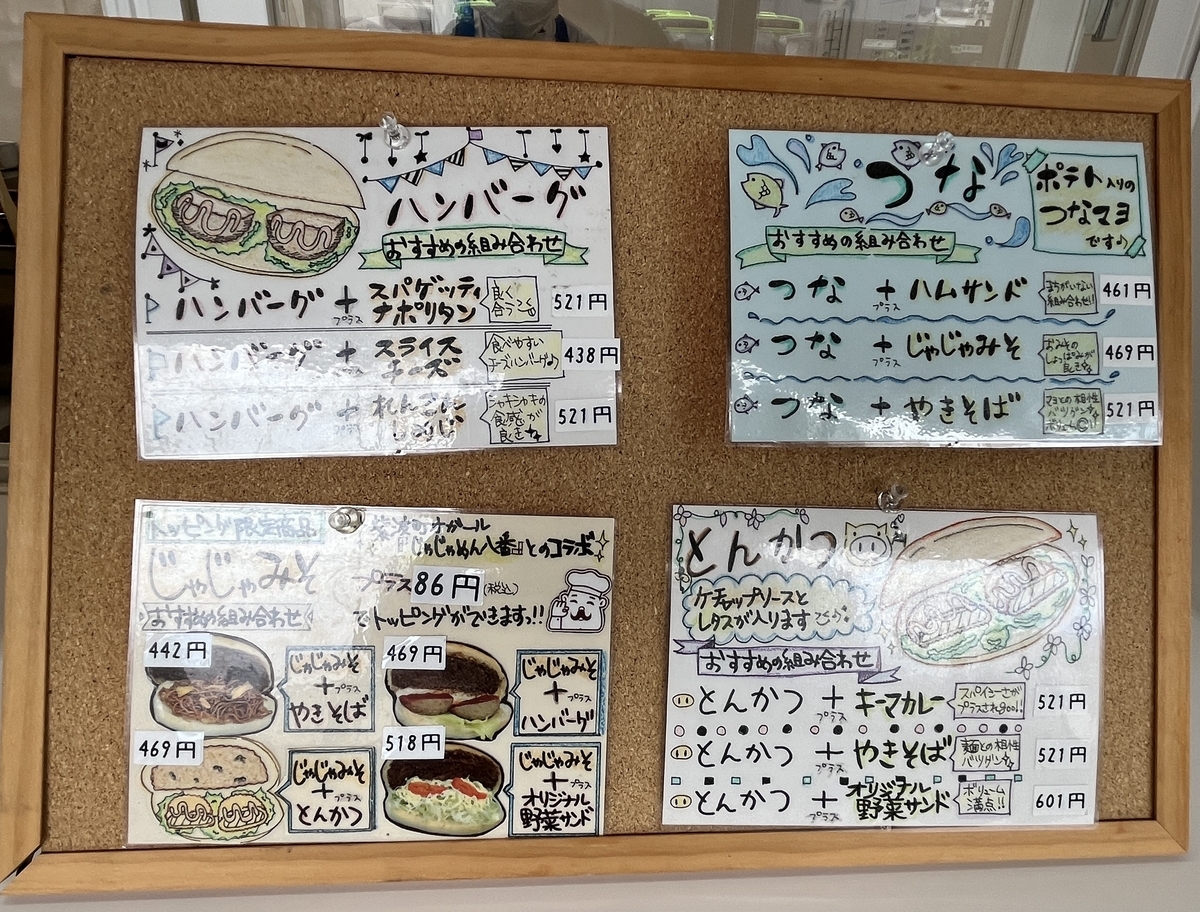 ハンバーグ
おすすめの組み合わせ
ハンバーグ + プラス スパゲッティ
ナポリタン
良く
合うっ
521円
ハンバーグ + スライス
チーズ
食べやすい
チーズハンバーグ♪
438円
ハンバーグ + れんこん
しめじ
シャキシャキの
食感が
良き
521円
つな
ポテト入りの
つなマヨ
です♪
おすすめの組み合わせ
つな + プラス ハムサンド
まちがいない
組み合わせ!!
461円
つな + プラス じゃじゃみそ
おみその
しょっぱみが
良き
469円
つな + プラス やきそば
マヨとの相性
バツグン
ボリューム◎
521円
トッピング限定商品
じゃじゃみそ
おすすめ組み合わせ
オガール
『じゃじゃめん八番』とのコラボ
プラス86円(税込)
でトッピングができますっ!!
442円
じゃじゃみそ
+ プラス
やきそば
469円
じゃじゃみそ
+ プラス
ハンバーグ
469円
じゃじゃみそ
+ プラス
とんかつ
518円
じゃじゃみそ
+ プラス
オリジナル
野菜サンド
とんかつ
ケチャップソースと
レタスが入ります
おすすめの組み合わせ
とんかつ + プラス キーマカレー
スパイシーさが
プラスされgood!!
521円
とんかつ + プラス やきそば
麺との相性
バツグン
521円
とんかつ + プラス オリジナル
野菜サンド
ボリューム
満点!!
601円